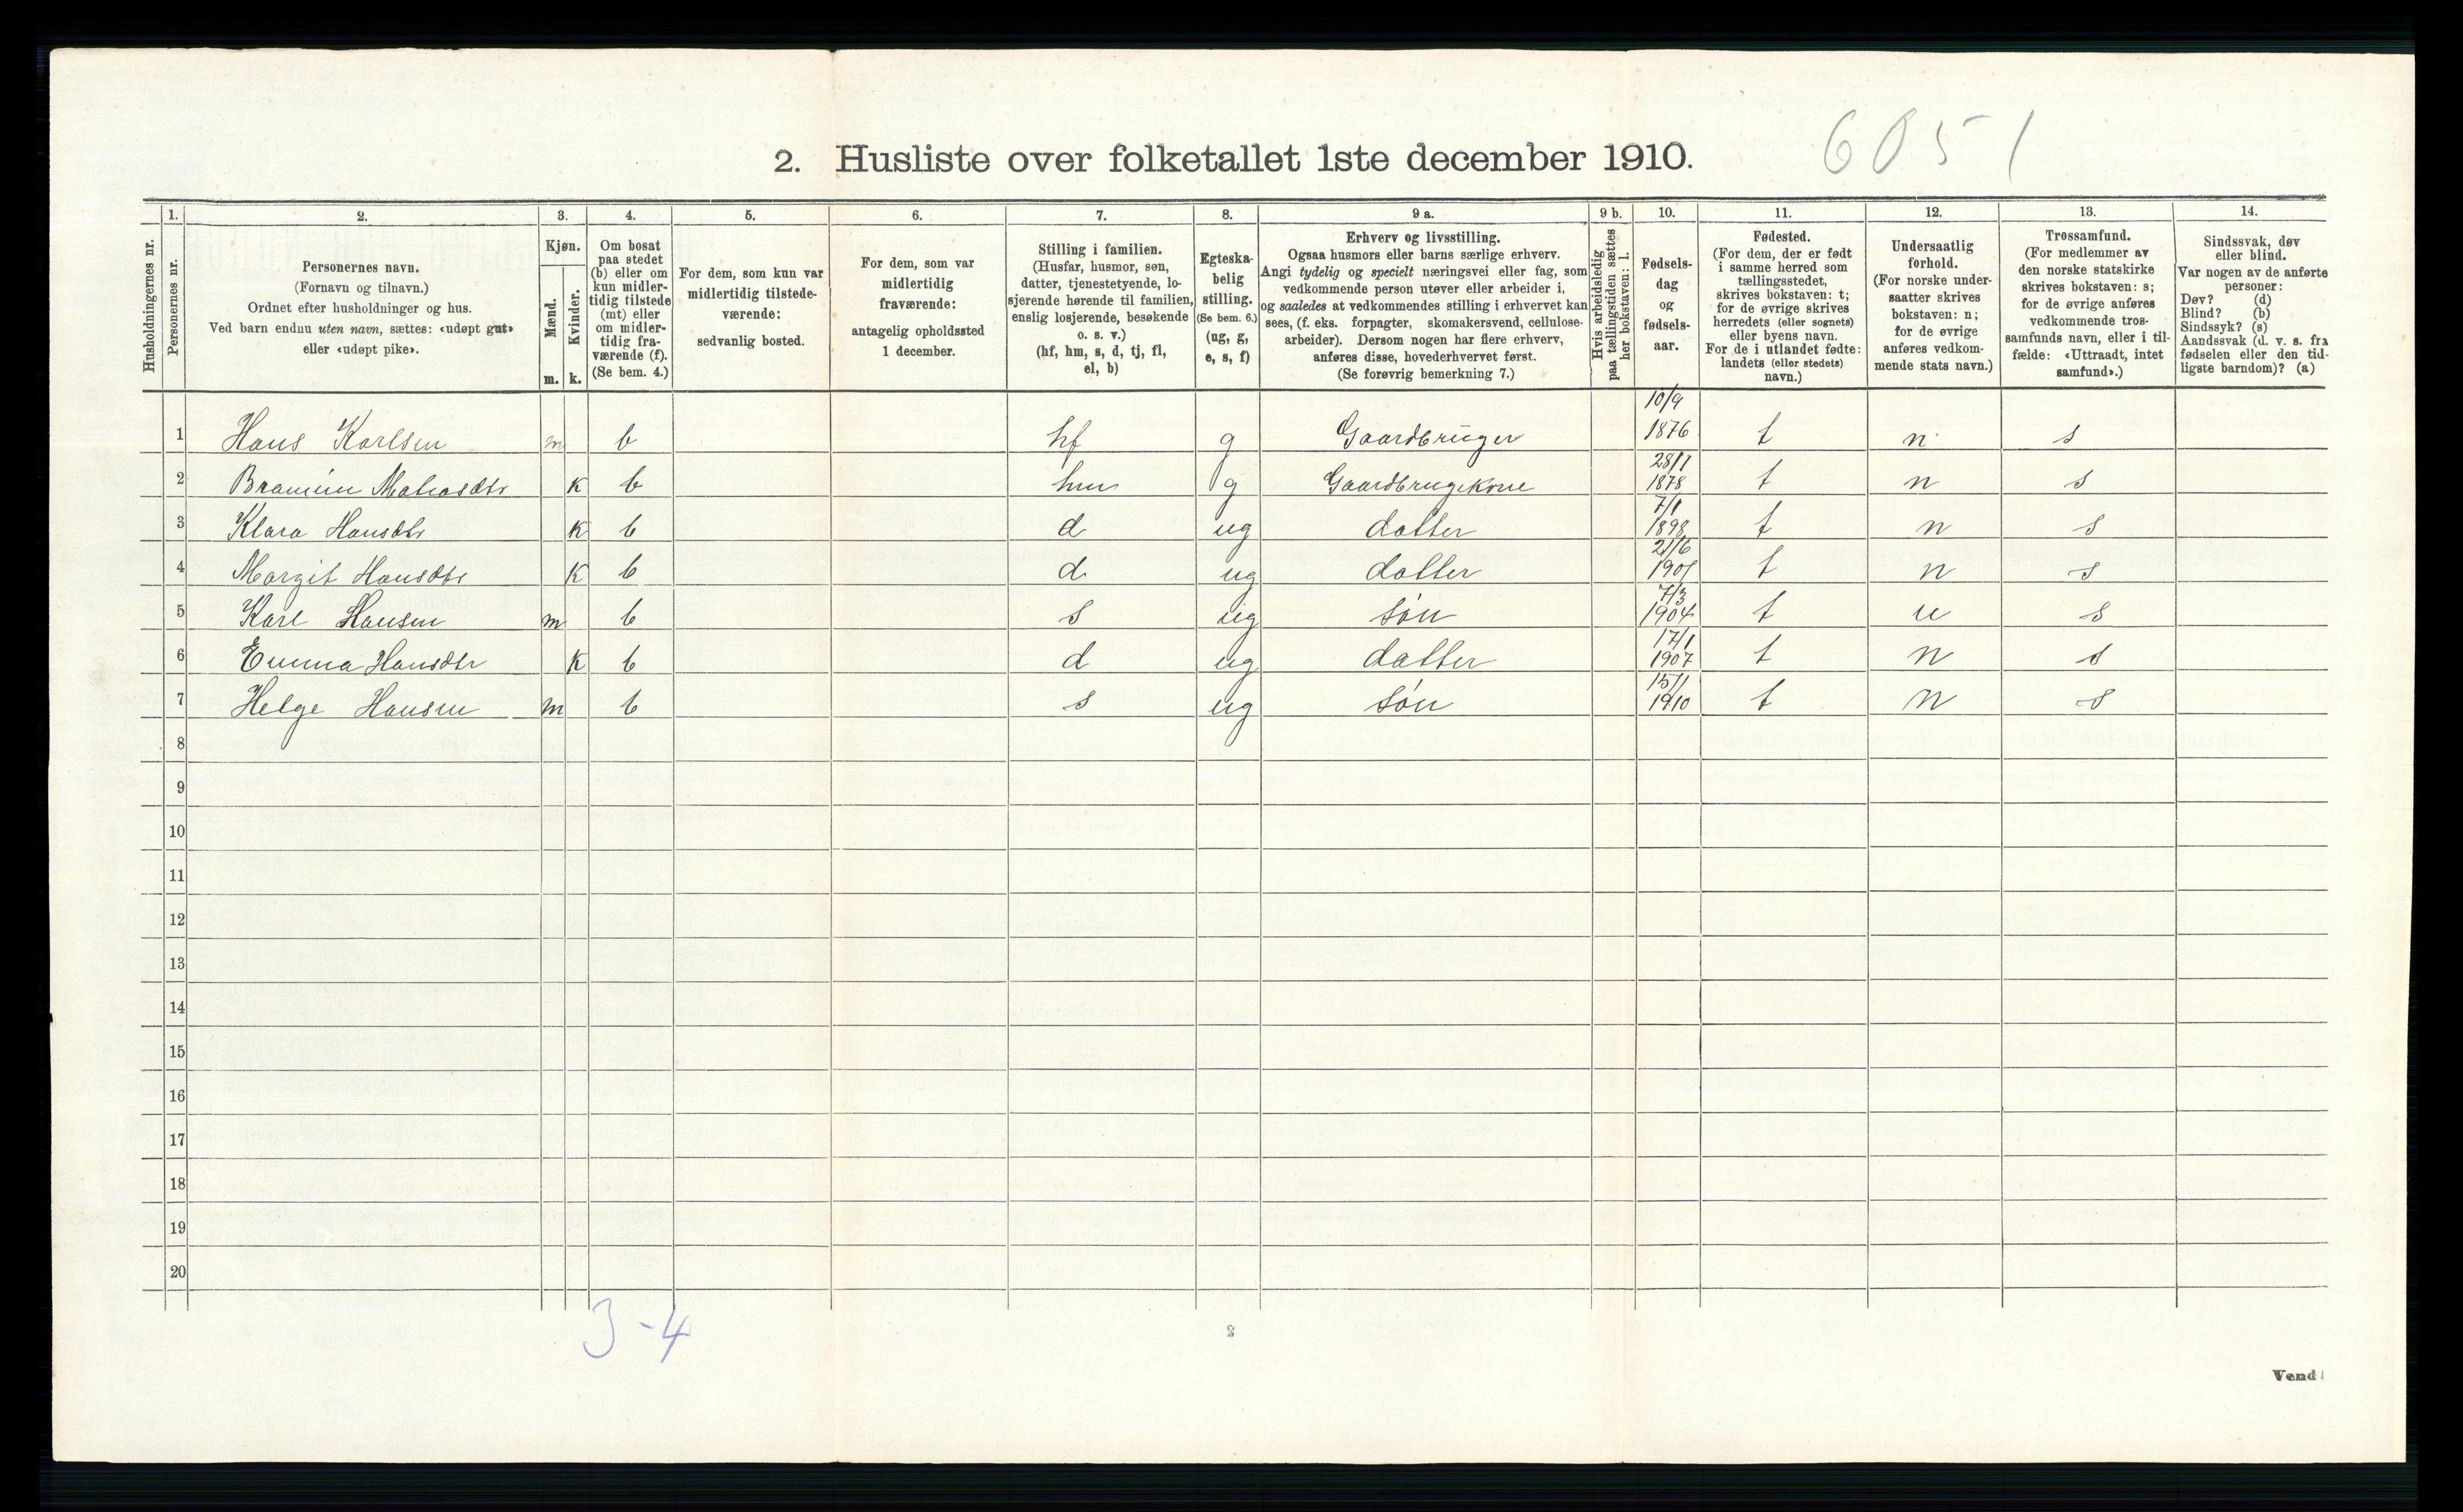 6051
2. Husliste over folketallet 1ste december 1910.
1. 2. 3. 4. 5. 6. 7. 8. 9 a. 9 b. 10. 11. 12. 13. 14.
Husholdningernes nr.
Personernes nr.
Personernes navn.
(Fornavn og tilnavn.)
Ordnet efter husholdninger og hus.
Ved barn endnu uten navn, sættes: «udøpt gut»
eller «udøpt pike».
Kjøn.
Mænd.
m.
Kvinder.
k.
Om bosat
paa stedet
(b) eller om
kun midler-
tidig tilstede
(mt) eller
om midler-
tidig fra-
værende (f).
(Se bem. 4.)
For dem, som kun var
midlertidig tilstede-
værende:
sedvanlig bosted.
For dem, som var
midlertidig
fraværende:
antagelig opholdssted
1 december.
Stilling i familien.
(Husfar, husmor, søn,
datter, tjenestetyende, lo-
sjerende hørende til familien,
enslig losjerende, besøkende
o. s. v.)
(hf, hm, s, d, tj, fl,
el, b)
Egteska-
belig
stilling.
(Se bem. 6.)
(ug, g,
e, s, f)
Erhverv og livsstilling.
Ogsaa husmors eller barns særlige erhverv.
Angi tydelig og specielt næringsvei eller fag, som
vedkommende person utøver eller arbeider i,
og saaledes at vedkommendes stilling i erhvervet kan
sees, (f. eks. forpagter, skomakersvend, cellulose-
arbeider). Dersom nogen har flere erhverv,
anføres disse, hovederhvervet først.
(Se forøvrig bemerkning 7.)
Hvis arbeidsledig
paa tællingstiden sættes
her bokstaven: l.
Fødsels-
dag
og
fødsels-
aar.
Fødested.
(For dem, der er født
i samme herred som
tællingsstedet,
skrives bokstaven: t;
for de øvrige skrives
herredets (eller sognets)
eller byens navn.
For de i utlandet fødte:
landets (eller stedets)
navn.)
Undersaatlig
forhold.
(For norske under-
saatter skrives
bokstaven: n;
for de øvrige
anføres vedkom-
mende stats navn.)
Trossamfund.
(For medlemmer av
den norske statskirke
skrives bokstaven: s;
for de øvrige anføres
vedkommende tros-
samfunds navn, eller i til-
fælde: «Uttraadt, intet
samfund».)
Sindssvak, døv
eller blind.
Var nogen av de anførte
personer:
Døv? (d)
Blind? (b)
Sindssyk? (s)
Aandssvak (d. v. s. fra
fødselen eller den tid-
ligste barndom)? (a)
1 Hans Karlsen m b hf g Gaardbruger 10/9 1876 t n s
2 k b hm g Gaardbrugekone 28/1 1878 t n s
3 Klara Hansdtr k b d ug datter 7/1 1898 t n s
4 Margit Hansdtr k b d ug datter 21/6 1901 t n s
5 Karl Hansen m b s ug søn 7/3 1904 t n s
6 Emma Hansdtr k b d ug datter 17/1 1907 t n s
7 Helge Hansen m b s ug søn 15/1 1910 t n s
8
9
10
11
12
13
14
15
16
17
18
19
20
3-4
2
Vend!